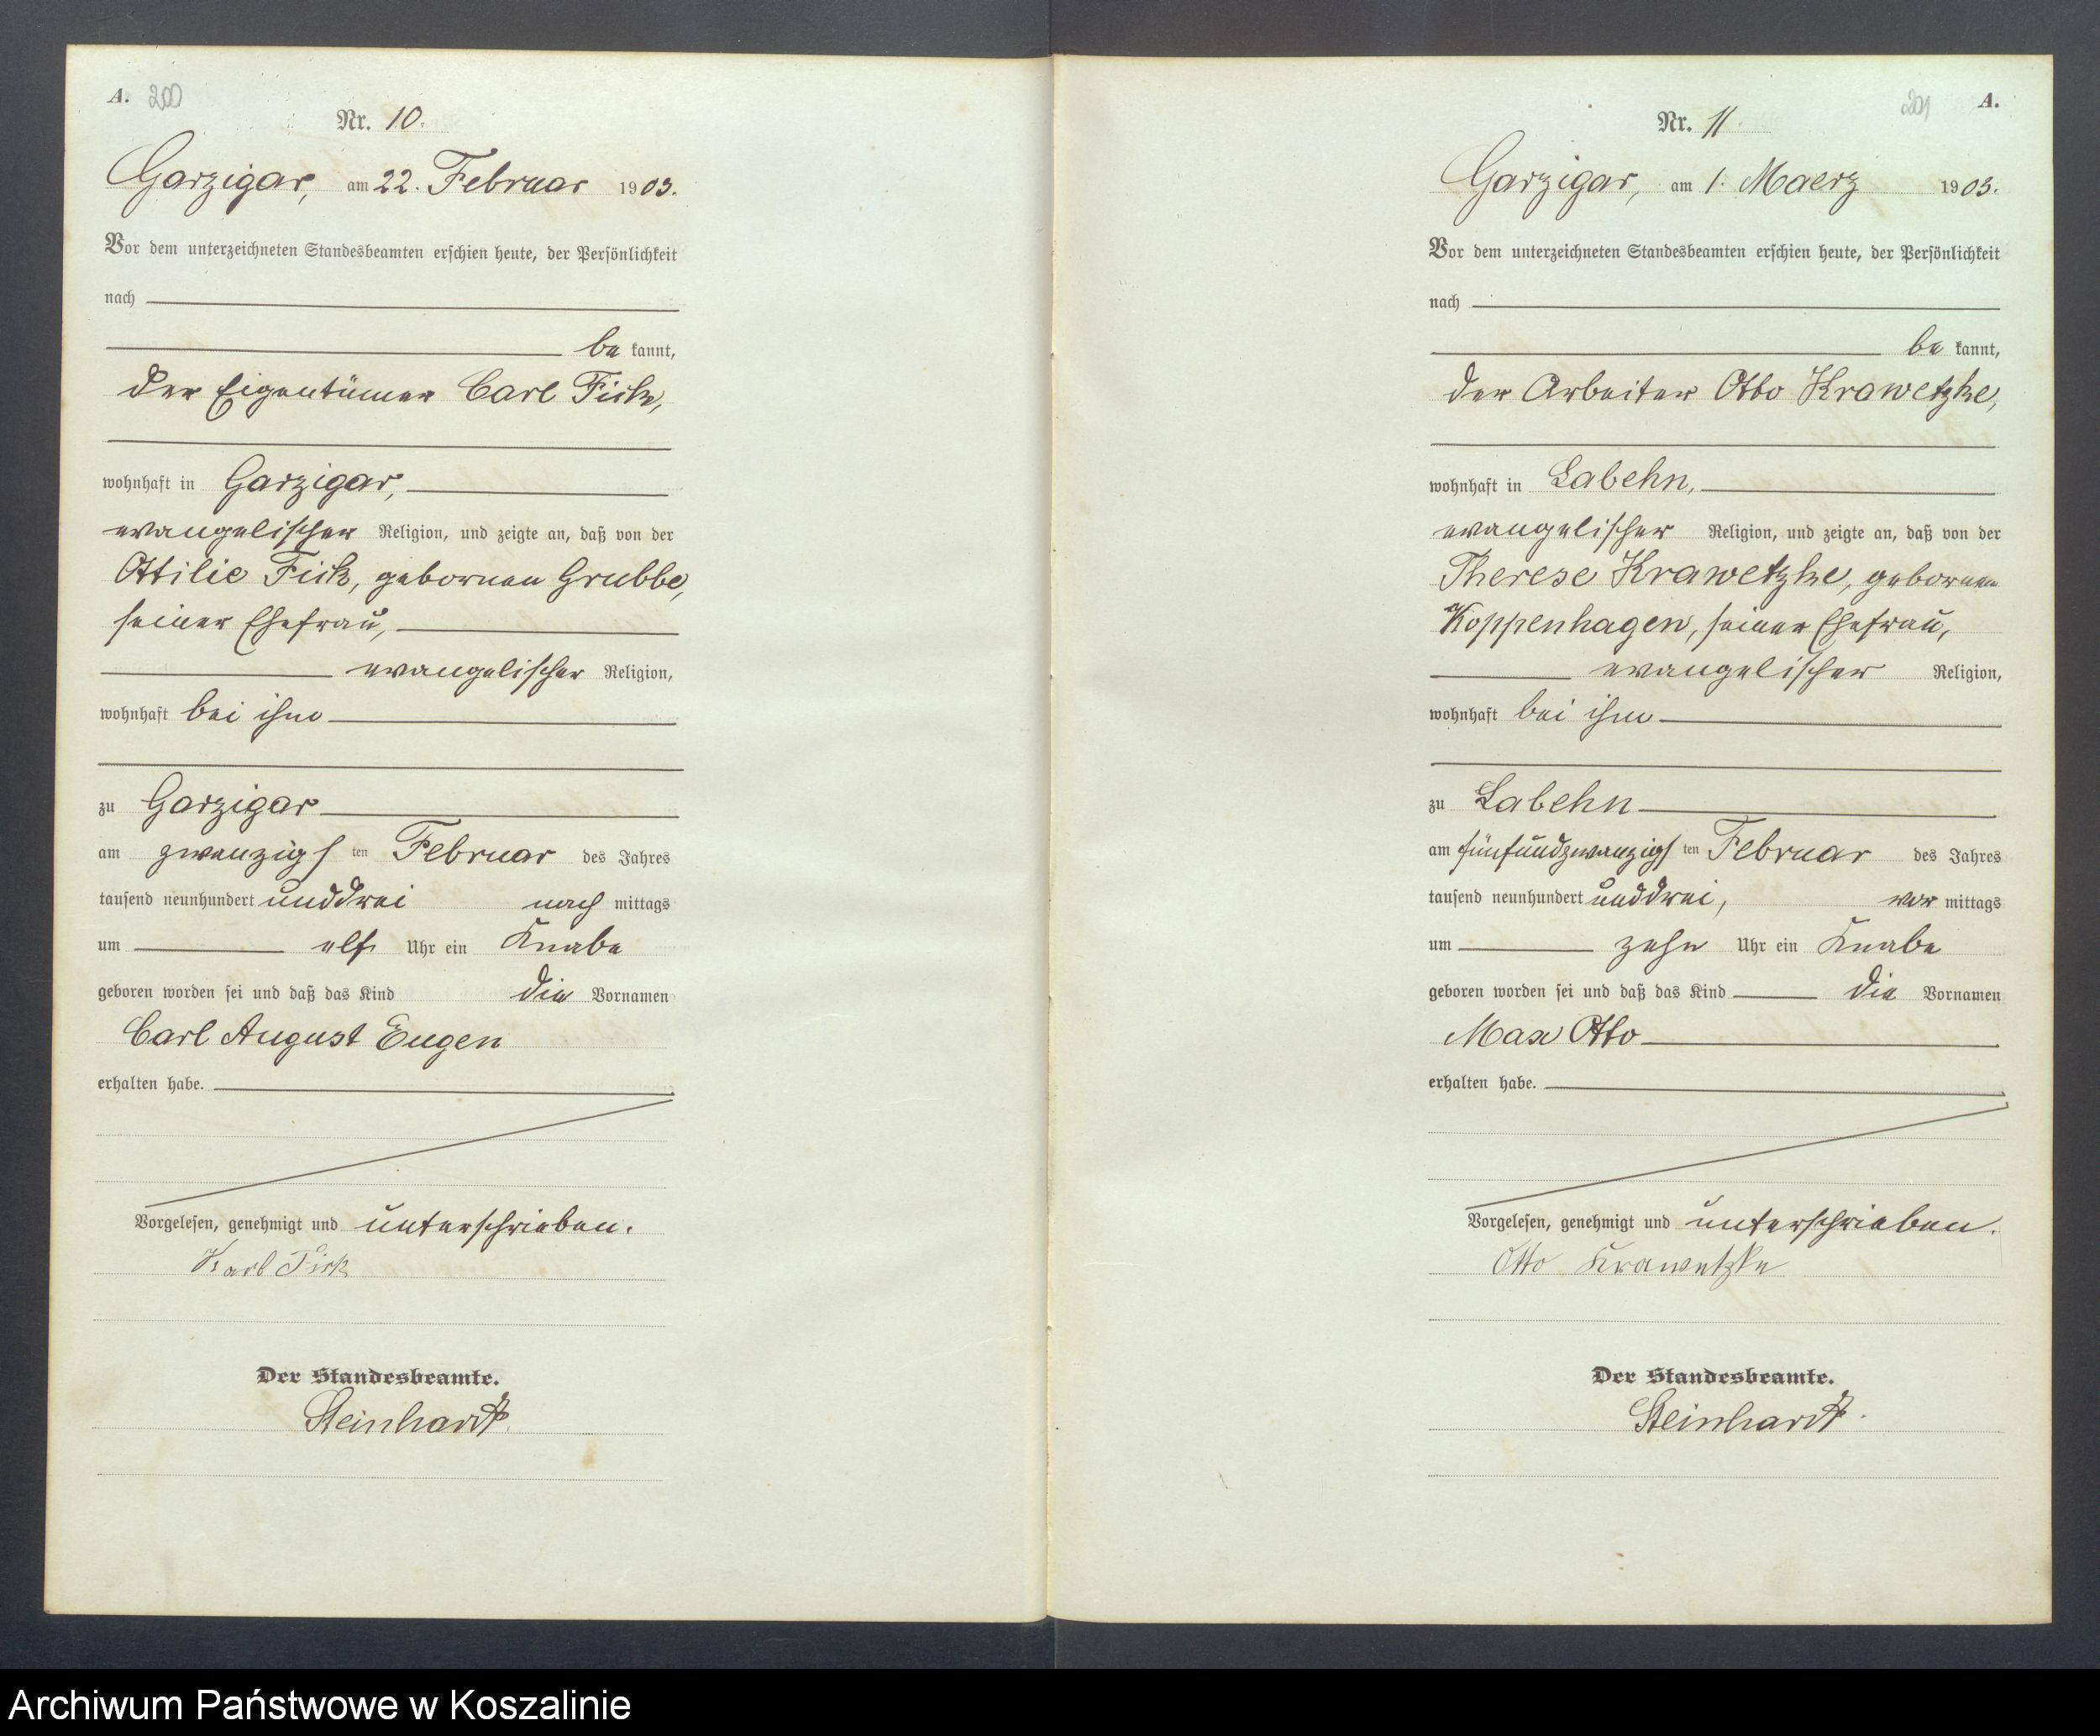 A. 200
Nr. 10.
Garzigar, am 22. Februar 1903.
Vor dem unterzeichneten Standesbeamten erschien heute, der Persönlichkeit
nach
be kannt,
der Eigentümer Carl Fick,
wohnhaft in Garzigar,
evangelischer Religion, und zeigte an, daß von der
Ottilie Fick, gebornen Grubbe,
seiner Ehefrau,
evangelischer Religion,
wohnhaft bei ihm
zu Garzigar
am zwanzigs ten Februar des Jahres
tausend neunhundert unddrei nach mittags
um elf Uhr ein Knabe
geboren worden sei und daß das Kind die Vornamen
Carl August Eugen
erhalten habe.
Vorgelesen, genehmigt und unterschrieben.
Karl Fick
Der Standesbeamte.
Steinhardt.
201 A.
Nr. 11.
Garzigar, am 1. Maerz 1903.
Vor dem unterzeichneten Standesbeamten erschien heute, der Persönlichkeit
nach
be kannt,
der Arbeiter Otto Krawetzke,
wohnhaft in Labehn,
evangelischer Religion, und zeigte an, daß von der
Therese Krawetzke, gebornen
Koppenhagen, seiner Ehefrau,
evangelischer Religion,
wohnhaft bei ihm
zu Labehn
am fünfundzwanzigs ten Februar des Jahres
tausend neunhundert unddrei, vor mittags
um zehn Uhr ein Knabe
geboren worden sei und daß das Kind die Vornamen
Max Otto
erhalten habe.
Vorgelesen, genehmigt und unterschrieben.
Otto Krawetzke
Der Standesbeamte.
Steinhardt.
Archiwum Państwowe w Koszalinie